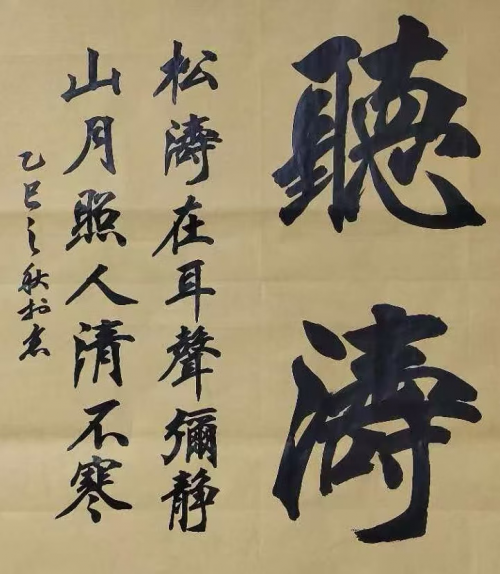 聽濤
松濤在耳聲彌静
山月照人清不寒
乙巳之秋於京